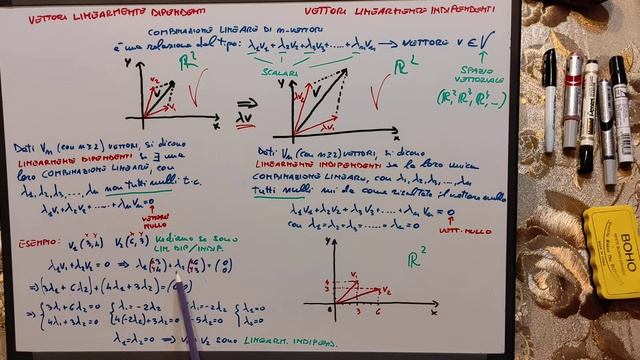 VETTORI LINEARMENTE DIPENDENTI
VETTORI LINEARMENTE INDIPENDENTI
COMBINAZIONE LINEARE DI m-VETTORI
è una relazione del tipo: λ₁V₁ + λ₂V₂ + λ₃V₃ + ..... + λₘVₘ → VETTORE V ∈ V
SCALARI
SPAZIO
VETTORIALE
(ℝ², ℝ³, ℝ⁴, ...)
y ℝ²
V₂ V λV₁
x
⇒
λV
y ℝ²
λV₂ V λV₁
x
Dati Vₘ (con m≥2) VETTORI, si dicono
LINEARMENTE DIPENDENTI se ∃ una
loro COMBINAZIONE LINEARE, con
λ₁, λ₂, λ₃, ..., λₘ non tutti nulli t.c.
λ₁V₁ + λ₂V₂ + .... + λₘVₘ = 0
VETTORE
NULLO
Dati Vₘ (con m≥2) VETTORI, si dicono
LINEARMENTE INDIPENDENTI se la loro unica
COMBINAZIONE LINEARE, con λ₁, λ₂, λ₃, ..., λₘ
tutti nulli mi da come risultato il vettore nullo
λ₁V₁ + λ₂V₂ + λ₃V₃ + .... + λₘVₘ = 0
con λ₁=λ₂=λ₃= .... =λₘ=0
VETT. NULLO
ESEMPIO: V₁ (3,4) V₂ (6,3) Vediamo se sono
LIN. DIP/INDIP.
λ₁V₁ + λ₂V₂ = 0 ⇒
⇒ (3λ₁ + 6λ₂) + (4λ₁ + 3λ₂) =
⇒ {3λ₁ + 6λ₂ = 0 {λ₁ = -2λ₂ λ₁ = -2λ₂ {λ₁ = 0
4λ₁ + 3λ₂ = 0 4(-2λ₂) + 3λ₂ = 0 -5λ₂ = 0 λ₂ = 0
λ₁ = λ₂ = 0 ⇒ V₂ SONO LINEARM. INDIPEND.
y ℝ²
4 V₁
3 V₂
0 3 6 x
BOHO